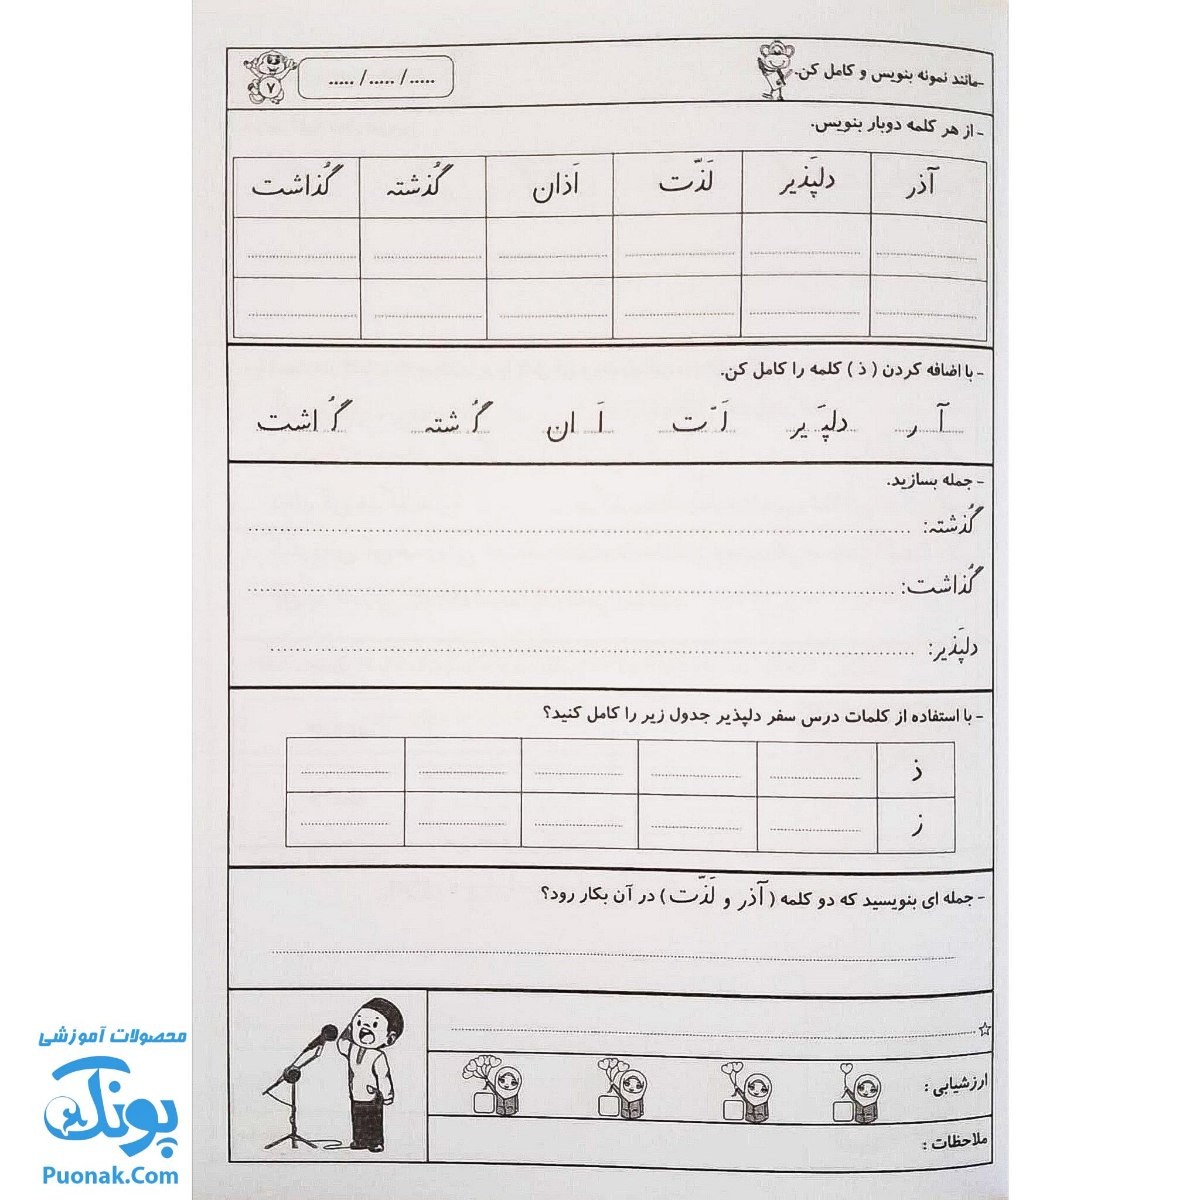 -مانند نمونه بنویس و کامل کن.
...../...../.....
۷
- از هر کلمه دوبار بنویس.
آذر دلپَذیر لَذّت اَذان گُذشته گُذاشت
- با اضافه کردن ( ذ ) کلمه را کامل کن.
آ ر دلپَ یر لَ ّت اَ ان گُ شته گُ اشت
- جمله بسازید.
گُذشته:
گُذاشت:
دلپَذیر:
- با استفاده از کلمات درس سفر دلپذیر جدول زیر را کامل کنید؟
ذ
ز
- جمله ای بنویسید که دو کلمه ( آذر و لَذّت ) در آن بکار رود؟
ارزشیابی :
ملاحظات :
محصولات آموزشی
پونک
Puonak.Com